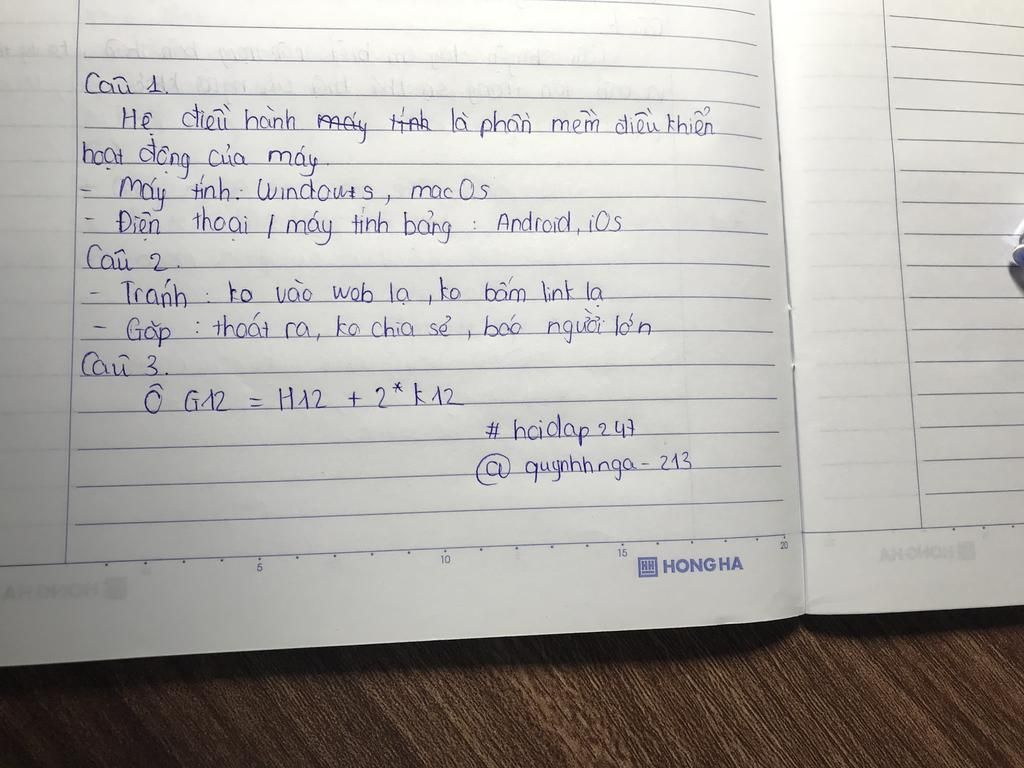 Câu 1.
Hệ điều hành máy tính là phần mềm điều khiển
hoạt động của máy.
- Máy tính: Windows, macOs
- Điện thoại / máy tính bảng : Android, iOs
Câu 2.
- Tránh : ko vào web lạ, ko bấm link lạ
- Gặp : thoát ra, ko chia sẻ, báo người lớn
Câu 3.
Ô G12 = H12 + 2* K12
# hoidap247
@ quynhhnga - 213
5 10 15 20
HH HONG HA